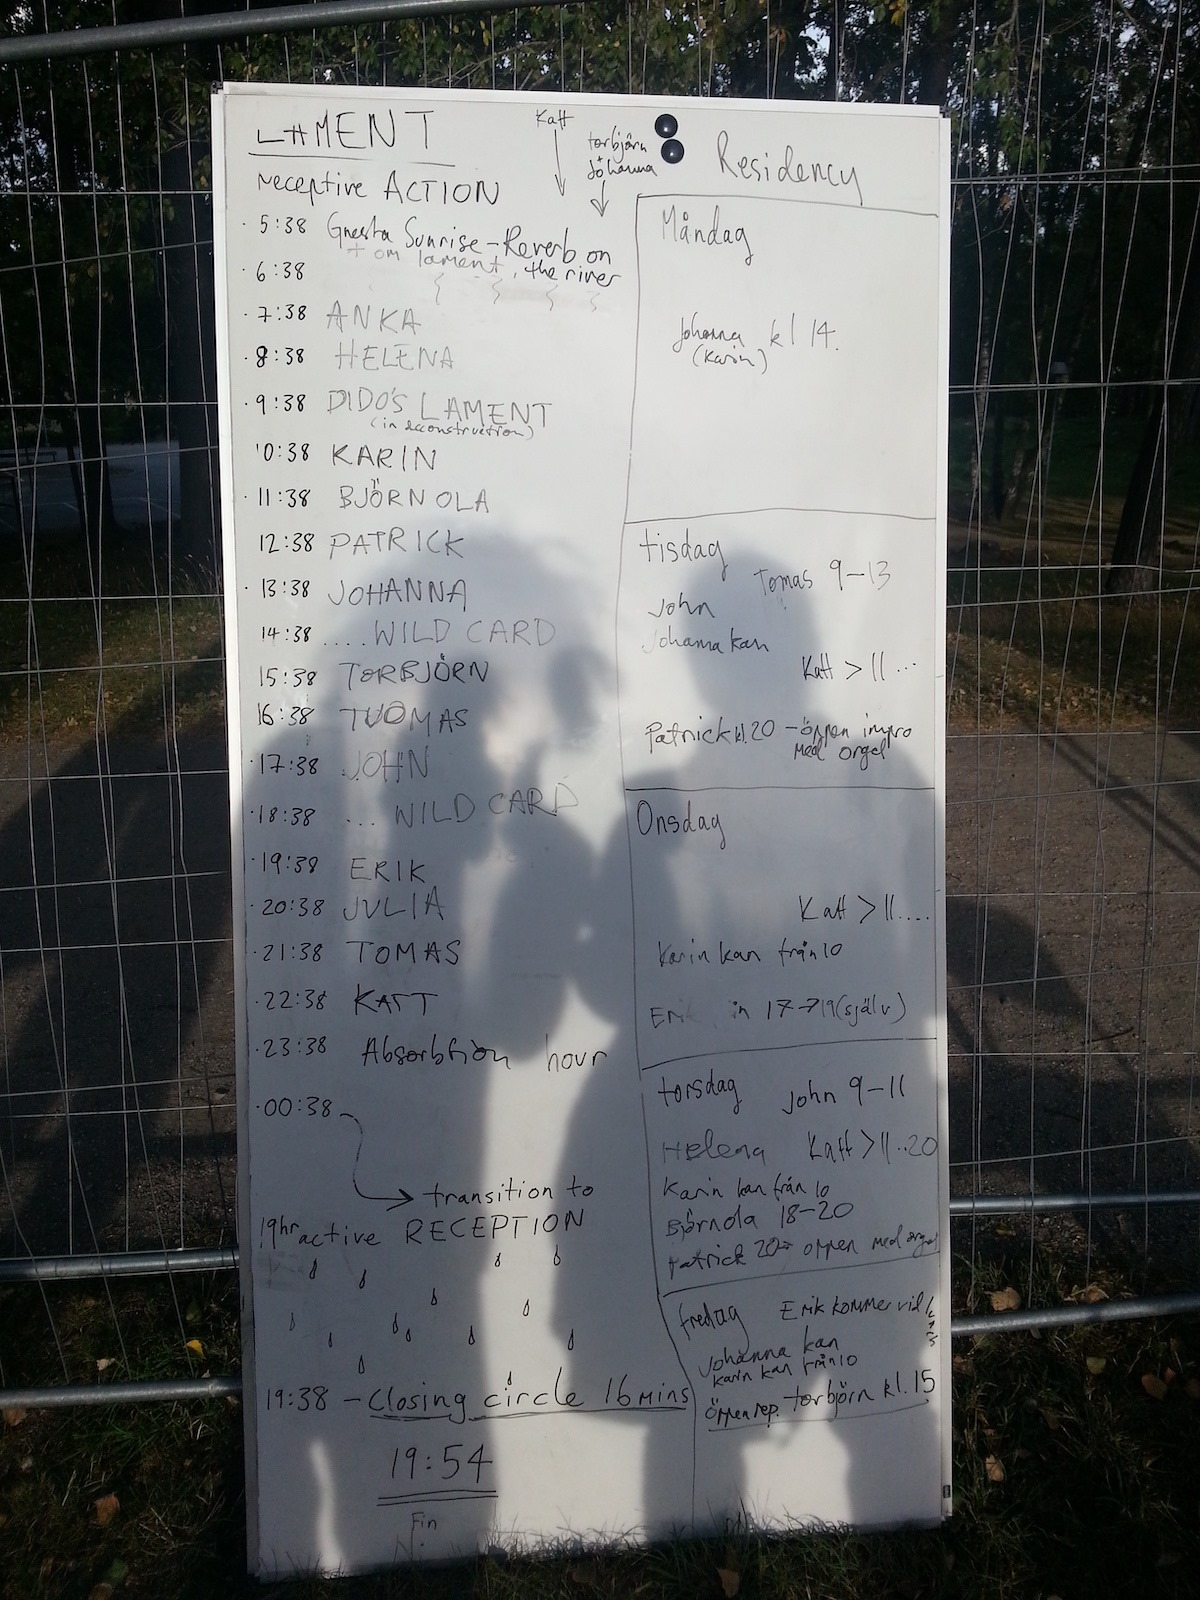 LAMENT
receptive ACTION
Katt
torbjörn
Johanna
5:38 Gnesta Sunrise - Reverb on
6:38 + om lament, the river
7:38 ANKA
8:38 HELENA
9:38 DIDO'S LAMENT
(in deconstruction)
10:38 KARIN
11:38 BJÖRN OLA
12:38 PATRICK
13:38 JOHANNA
14:38 .... WILD CARD
15:38 TORBJÖRN
16:38 TUOMAS
17:38 JOHN
18:38 ... WILD CARD
19:38 ERIK
20:38 JULIA
21:38 TOMAS
22:38 KATT
23:38 Absorbtion hour
00:38
transition to
19hr active RECEPTION
19:38 - Closing circle 16 mins
19:54
Fin
Residency
Måndag
Johanna kl 14.
(Karin)
tisdag
Tomas 9-13
John
Johanna kan
Katt > 11 ...
Patrick kl. 20 - öppen impro
med orgel
Onsdag
Katt > 11....
Karin kan från 10
Erik in 17→19 (själv)
torsdag John 9-11
Helena Katt > 11..20
Karin kan från 10
Björnola 18-20
Patrick 20→ öppen med orgel
fredag Erik kommer vid
Johanna kan
Karin kan från 10
Öppen rep. torbjörn kl. 15